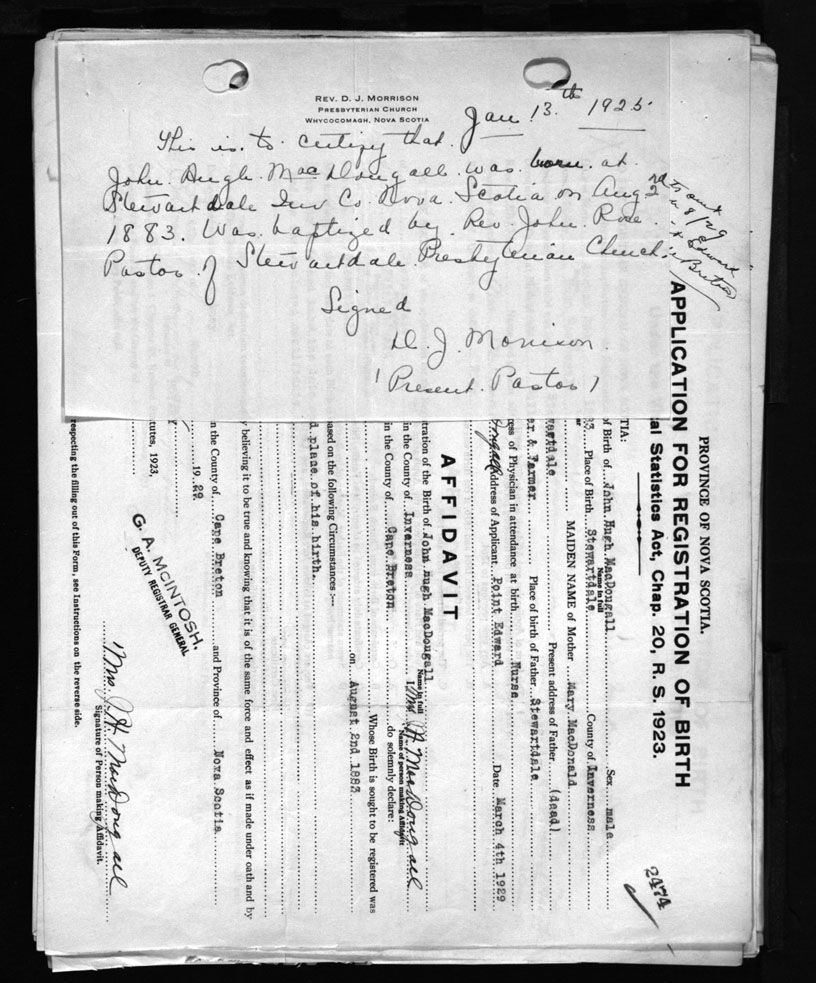 REV. D. J. MORRISON
PRESBYTERIAN CHURCH
WHYCOCOMAGH, NOVA SCOTIA
Jan 13th 1925
This is to certify that
John Hugh MacDougall was born at
Stewartdale Inv Co. Nova Scotia on Aug 2nd
1883. Was baptized by Rev. John Rose
Pastor of Stewartdale Presbyterian Church
Signed
D. J. Morrison
(Present Pastor)
8/29
Edward
Breton
PROVINCE OF NOVA SCOTIA.
APPLICATION FOR REGISTRATION OF BIRTH
al Statistics Act, Chap. 20, R. S. 1923.
2474
TIA:
of Birth of John Hugh MacDougall Sex male
Name in full
83 Place of Birth Stewartdale County of Inverness
MAIDEN NAME of Mother Mary MacDonald
wartdale Present address of Father (dead)
er & Farmer Place of birth of Father Stewartdale
ress of Physician in attendance at birth Nurse
ougall Address of Applicant Point Edward Date March 4th 1929
AFFIDAVIT
tration of the Birth of John Hugh MacDougall
Name in full
in the County of Inverness I, Mrs J H MacDougall
Name of person making Affidavit
in the County of Cape Breton do solemnly declare:
Whose Birth is sought to be registered was
on August 2nd 1883
ased on the following Circumstances:—
d place of his birth.
y believing it to be true and knowing that it is of the same force and effect as if made under oath and by
in the County of Cape Breton and Province of Nova Scotia
1929
G. A. McINTOSH.
DEPUTY REGISTRAR GENERAL
tutes, 1923,
Mrs J H MacDougall
Signature of Person making Affidavit.
respecting the filling out of this Form, see Instructions on the reverse side.